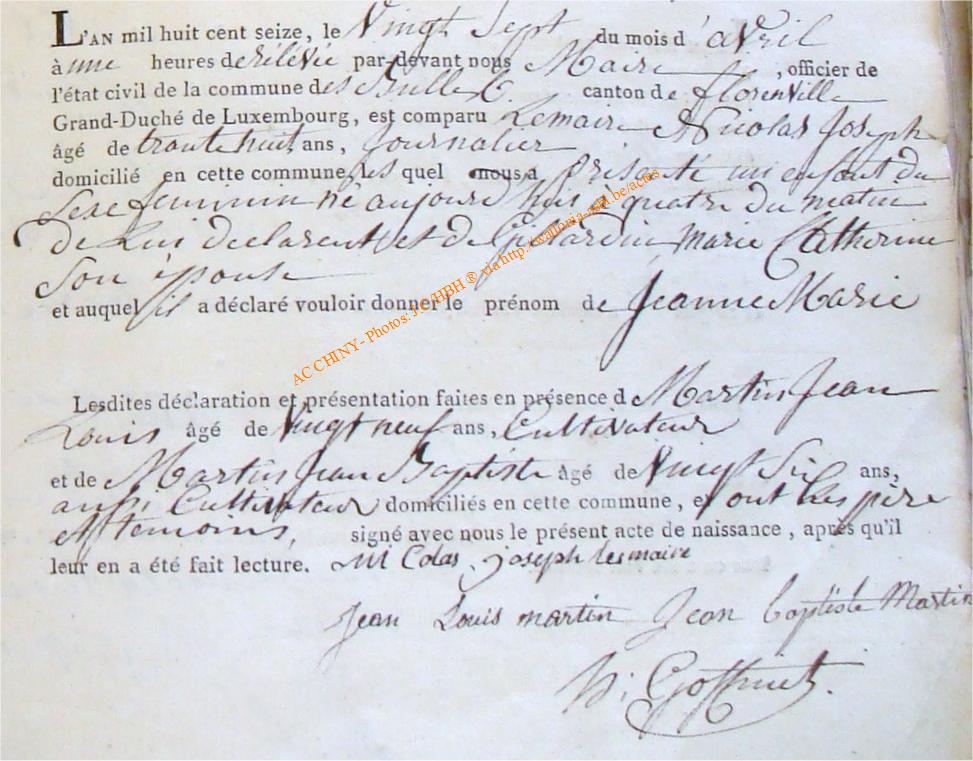 L'AN mil huit cent seize, le Vingt Sept du mois d'avril
à une heures de rélévée par-devant nous Maire, officier de
l'état civil de la commune des Bulles canton de florenville
Grand-Duché de Luxembourg, est comparu Lemaire Nicolas Joseph
âgé de trante huit ans, Journalier
domicilié en cette commune, les quel nous a présenté un enfant du
Sexe feminin né aujourd'huis à quatre du matin
de Lui declarent et de Gillardin Marie Catherine
Son épouse
et auquel il a déclaré vouloir donner le prénom de Jeanne Marie
AC CHINY - Photos: HBH ® via http://wallonia-asbl.be/actes
Lesdites déclaration et présentation faites en présence d Martin Jean
Louis âgé de Vingt neuf ans, Cultivateur
et de Martin Jean Baptiste âgé de Vingt Six ans,
aussi Cultivateur domiciliés en cette commune, et ont les père
et temoins, signé avec nous le présent acte de naissance, après qu'il
leur en a été fait lecture. ni Colas joseph lesmaire
Jean Louis martin Jean baptiste Martin
h: Goffinet.